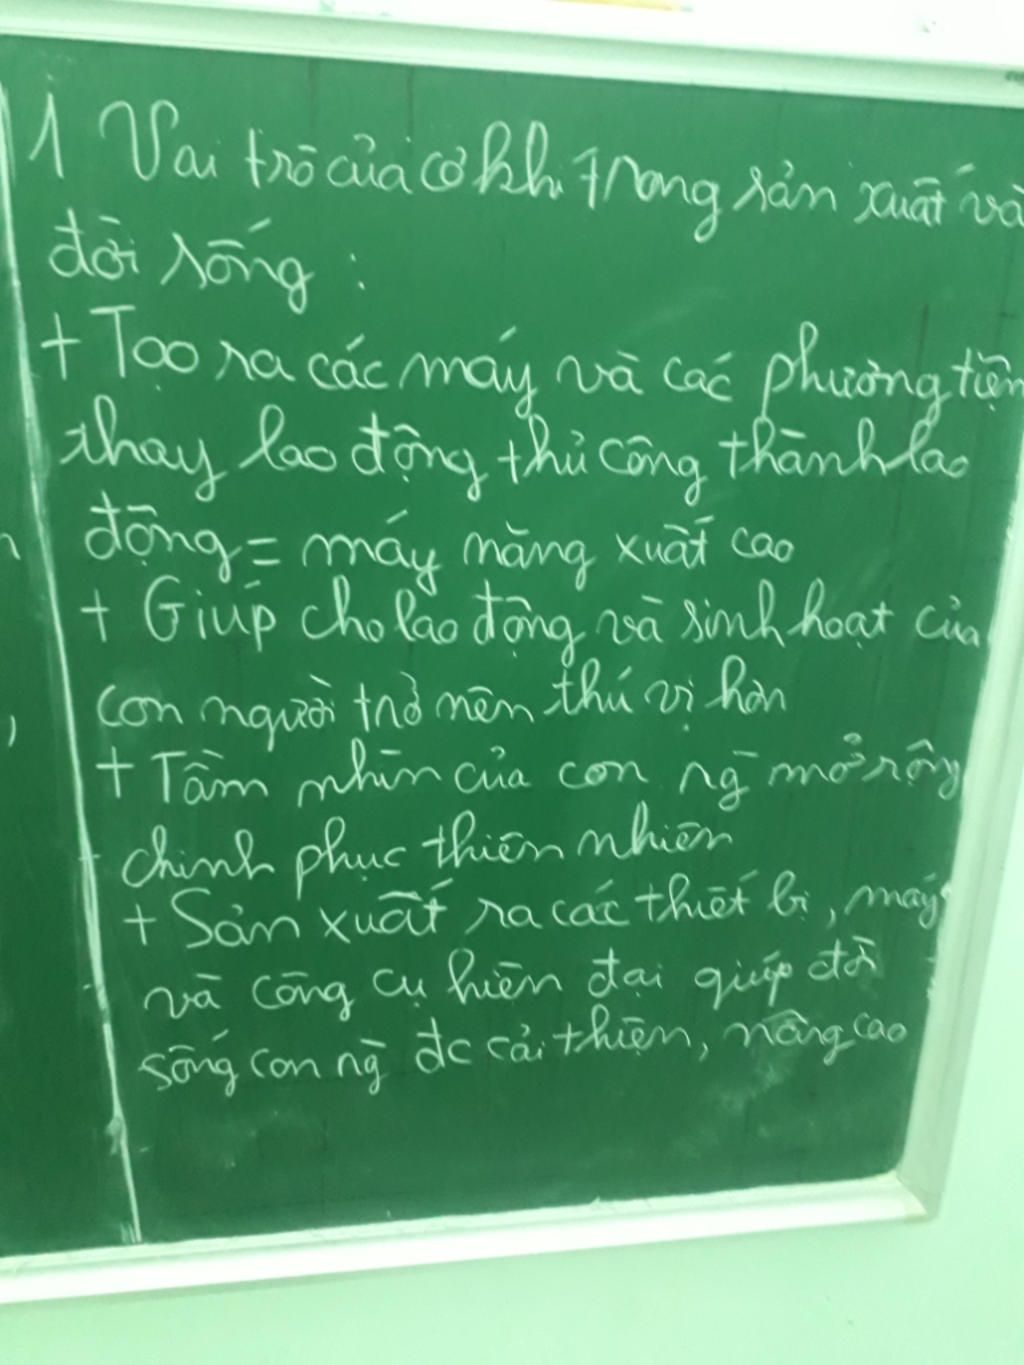 1 Vai trò của cơ khí trong sản xuất và
đời sống :
+ Tạo ra các máy và các phương tiện
thay lao động thủ công thành lao
động = máy năng xuất cao
+ Giúp cho lao động và sinh hoạt của
con người trở nên thú vị hơn
+ Tầm nhìn của con ng̀ mở rộng
chinh phục thiên nhiên
+ Sản xuất ra các thiết bị, máy
và công cụ hiện đại giúp đời
sống con ng̀ đc cải thiện, nâng cao